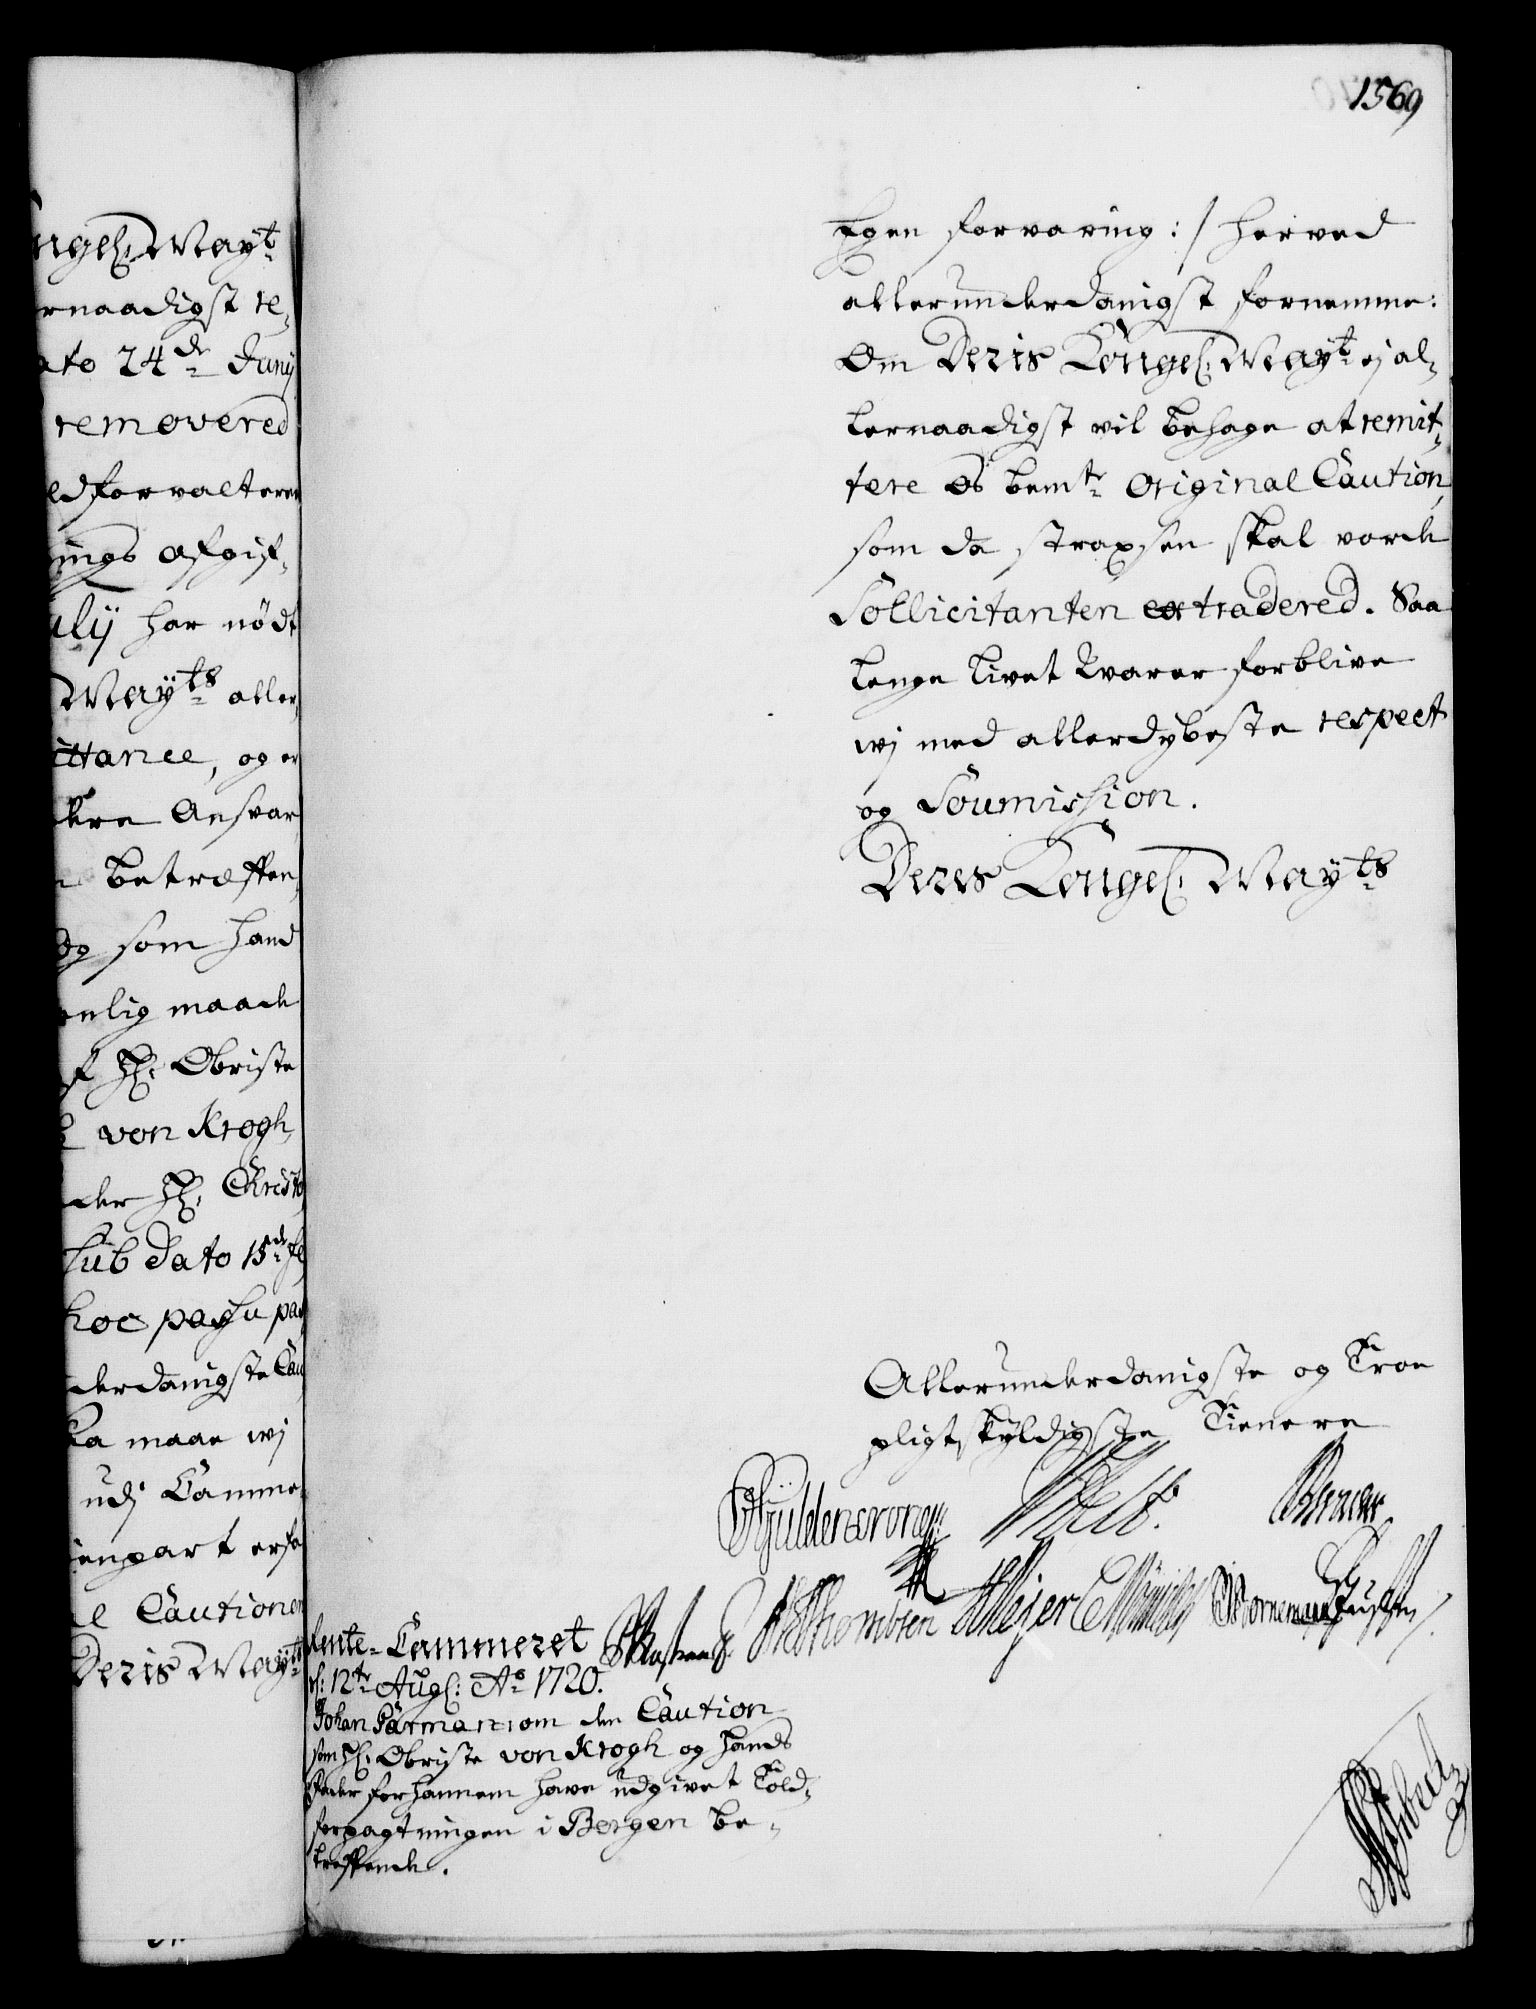 ngel. Mayt
rnaadigst re-
ato 24de Junij
removered
ldforvalteren
ings afgif-
ulij har nødt
Mayts aller-
ittance, og er
dere Ansvar
betreffen-
og som hand
enlig maade
af Hr. Obriste
von Krogh,
der Hr. Christo
sub dato 15de
hoc passu pa
derdanigste Cau
da maae wj
udj Camme-
ienpart erfa
Cautionen
Deris Mayts
1569
Egen forvaring :/ herved
allerunderdanigst fornemme:
Om Deris Kongel. Mayt ej al-
lernaadigst vil behage at remit-
tere os bemte Original Caution,
som da straxsen skal vorde
Sollicitanten extradered. Saa
lenge livet varer forblive
wj med allerdybeste respect
og Soumission.
Deris Kongel. Mayts
Allerunderdanigste og Troe
pligtskyldigste Tienere
Gyldencrone
Thombsen Meijer Bornemann
Rente-Cammeret
d: 12te Aug: Ao 1720.
Johan Garman om den Caution
som Hr. Obriste von Krogh og hands
Fader for hannem have udgivet Told-
forpagtningen i Bergen be-
treffende.